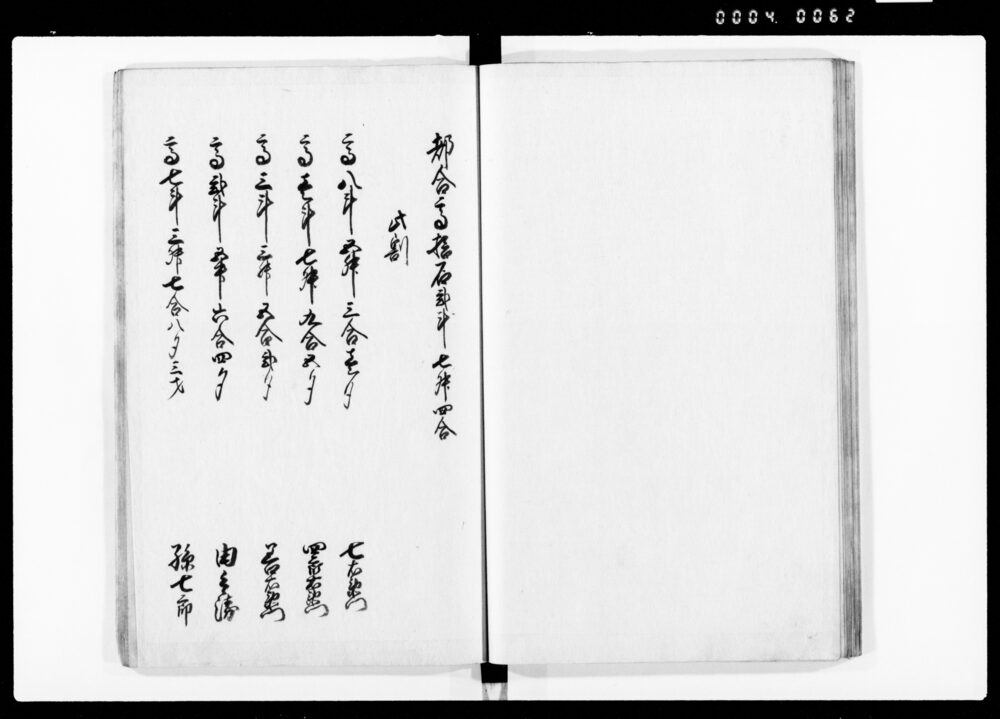 0004 0062
都合高拾石弐斗七升四合
此割
高八斗五升三合壱夕 七右衛門
高壱斗七升九合五夕 四郎右衛門
高三斗三升五合弐夕 右衛門
高弐斗五升六合四夕
高七斗三升七合八夕三才 孫七郎